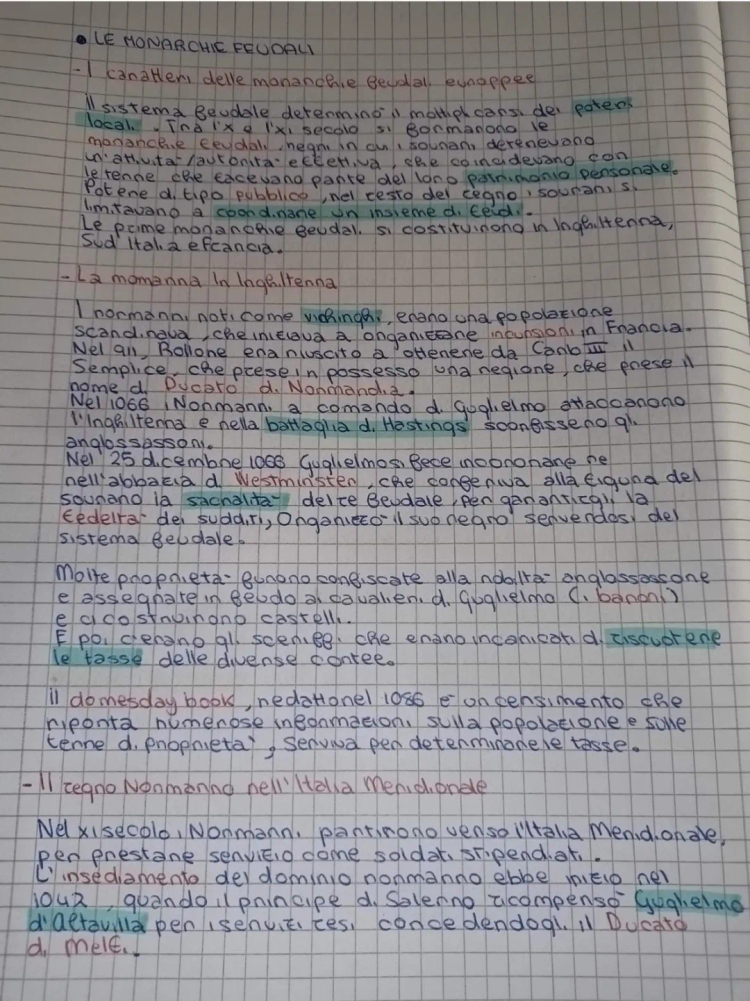 • LE MONARCHIE FEUDALI
- I caratteri delle monarchie feudali europpee
il sistema feudale determinò il moltiplicarsi dei poteri
locali. Tra l'x e l'xi secolo si formarono le
monarchie feudali, regni in cui i sovrani detenevano
un'attività/autorità effettiva, che coincidevano con
le terre che facevano parte del loro patrimonio personale.
Potere di tipo pubblico, nel resto del regno i sovrani si
limitavano a coordinare un insieme di feudi.
Le prime monarchie feudali si costituirono in Inghilterra,
Sud Italia e francia.
- La momanna In Inghilterra
I normanni noti come vichinghi, erano una popolazione
scandinava, che iniziava a organizzare incursioni in Francia.
Nel 911, Rollone era riuscito a ottenere da Carlo III il
Semplice, che prese in possesso una regione, che prese il
nome di Ducato di Normandia.
Nel 1066 i Normanni a comando di Guglielmo attaccarono
l'Inghilterra e nella battaglia di Hastings sconfissero gli
anglossassoni.
Nel 25 dicembre 1066 Guglielmo si fece incoronare re
nell'abbazia di Westminster, che conferiva alla figura del
sovrano la sacralità del re feudale, per garantirgli la
fedeltà dei sudditi, Organizzò il suo regno servendosi del
sistema feudale.
Molte proprietà furono confiscate alla nobiltà anglossassone
e assegnate in feudo ai cavalieri di Guglielmo (i baroni)
e ci costruirono castelli.
E poi c'erano gli sceriffi che erano incaricati di riscuotere
le tasse delle diverse contee.
il domesday book, redatto nel 1086 è un censimento che
riporta numerose informazioni sulla popolazione e sulle
terre di proprietà, serviva per determinare le tasse.
- Il regno Normanno nell'Italia Meridionale
Nel xi secolo i Normanni partirono verso l'Italia Meridionale,
per prestare servizio come soldati stipendiati.
L'insediamento del dominio normanno ebbe inizio nel
1042, quando il principe di Salerno ricompensò Guglielmo
d'altavilla per i servizi resi concedendogli il Ducato
di Melfi.